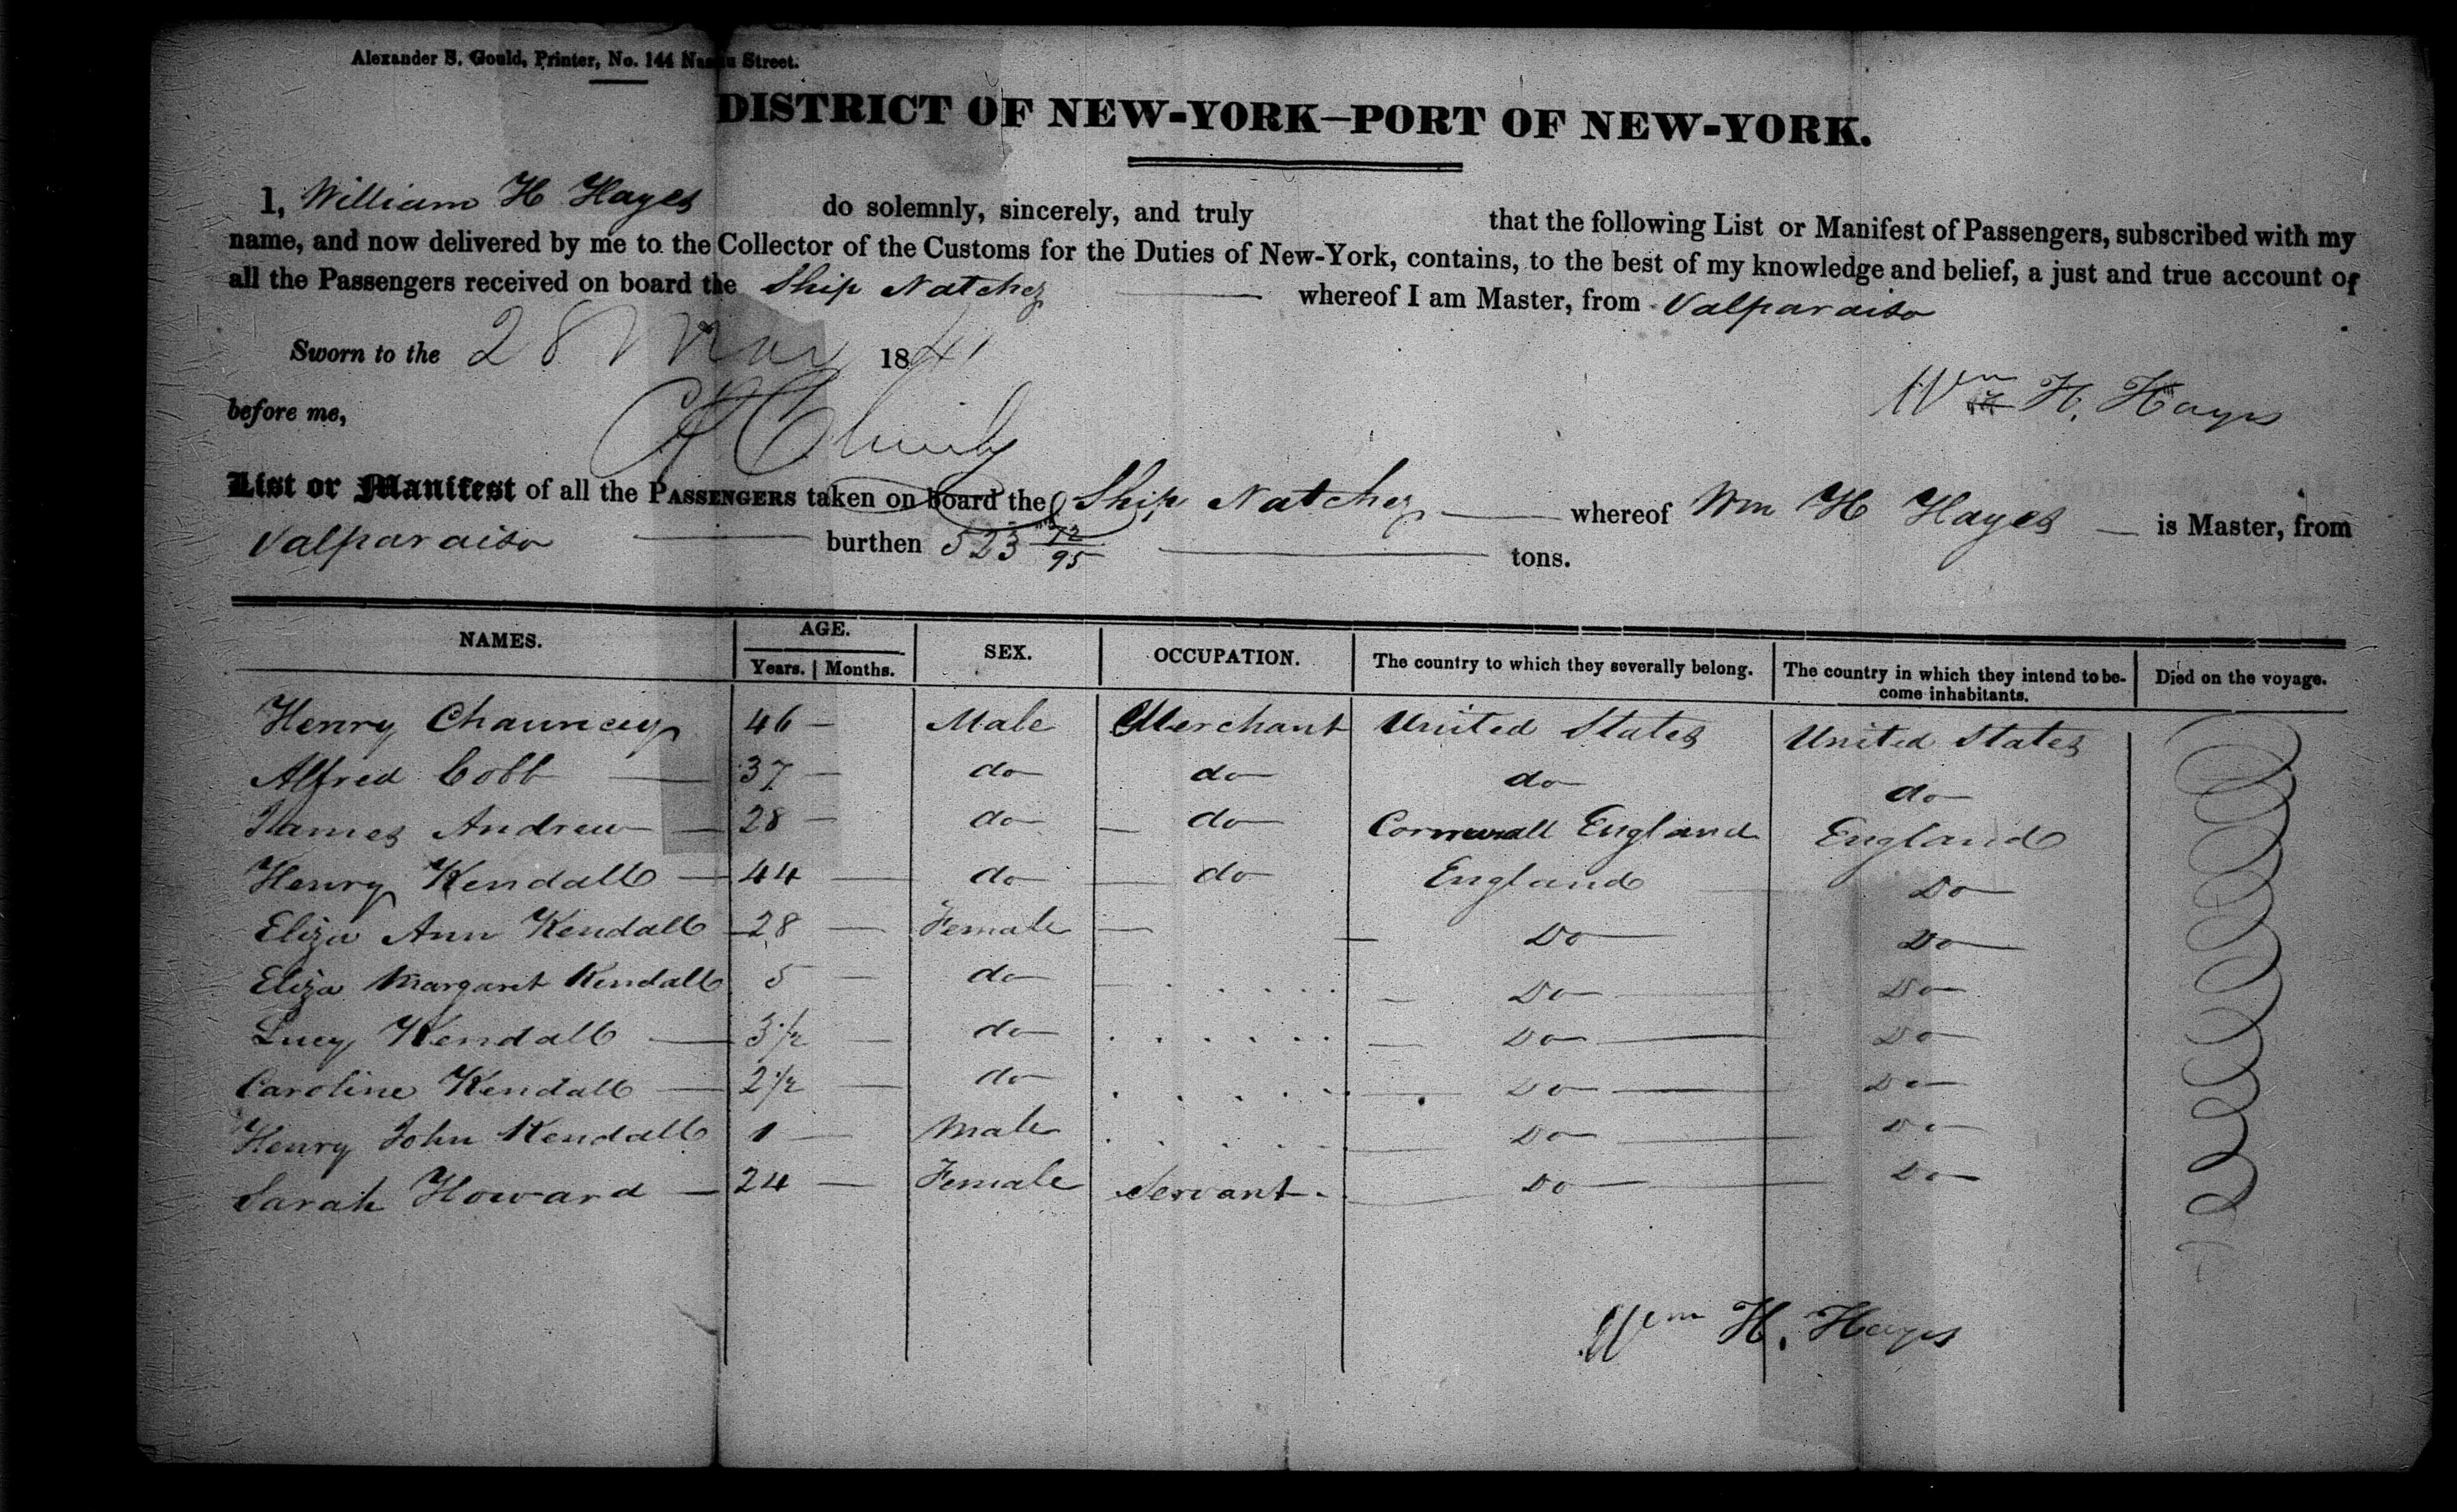 Alexander S. Gould, Printer, No. 144 Nassau Street.
DISTRICT OF NEW-YORK—PORT OF NEW-YORK.
I, William H Hayes do solemnly, sincerely, and truly that the following List or Manifest of Passengers, subscribed with my
name, and now delivered by me to the Collector of the Customs for the Duties of New-York, contains, to the best of my knowledge and belief, a just and true account of
all the Passengers received on board the Ship Natchez whereof I am Master, from Valparaiso
Sworn to the 28 1841
before me,
Wm H. Hayes
List or Manifest of all the PASSENGERS taken on board the Ship Natchez whereof Wm H Hayes is Master, from
Valparaiso burthen 523 72/95 tons.
NAMES. AGE. SEX. OCCUPATION. The country to which they severally belong. The country in which they intend to be- Died on the voyage.
Years. | Months. come inhabitants.
Henry Chauncey 46 — Male Merchant United States United States
Alfred Cobb — 37 — do do do do
James Andrew — 28 — do — do Cornwall England England
Henry Kendall — 44 — do — do England Do
Eliza Ann Kendall — 28 — Female — — Do Do
Eliza Margaret Kendall 5 — do — Do Do
Lucy Kendall — 3 1/2 — do — Do Do
Caroline Kendall — 2 1/2 — do — Do Do
Henry John Kendall 1 — Male Do Do
Sarah Howard — 24 — Female Servant — Do Do
Wm H. Hayes